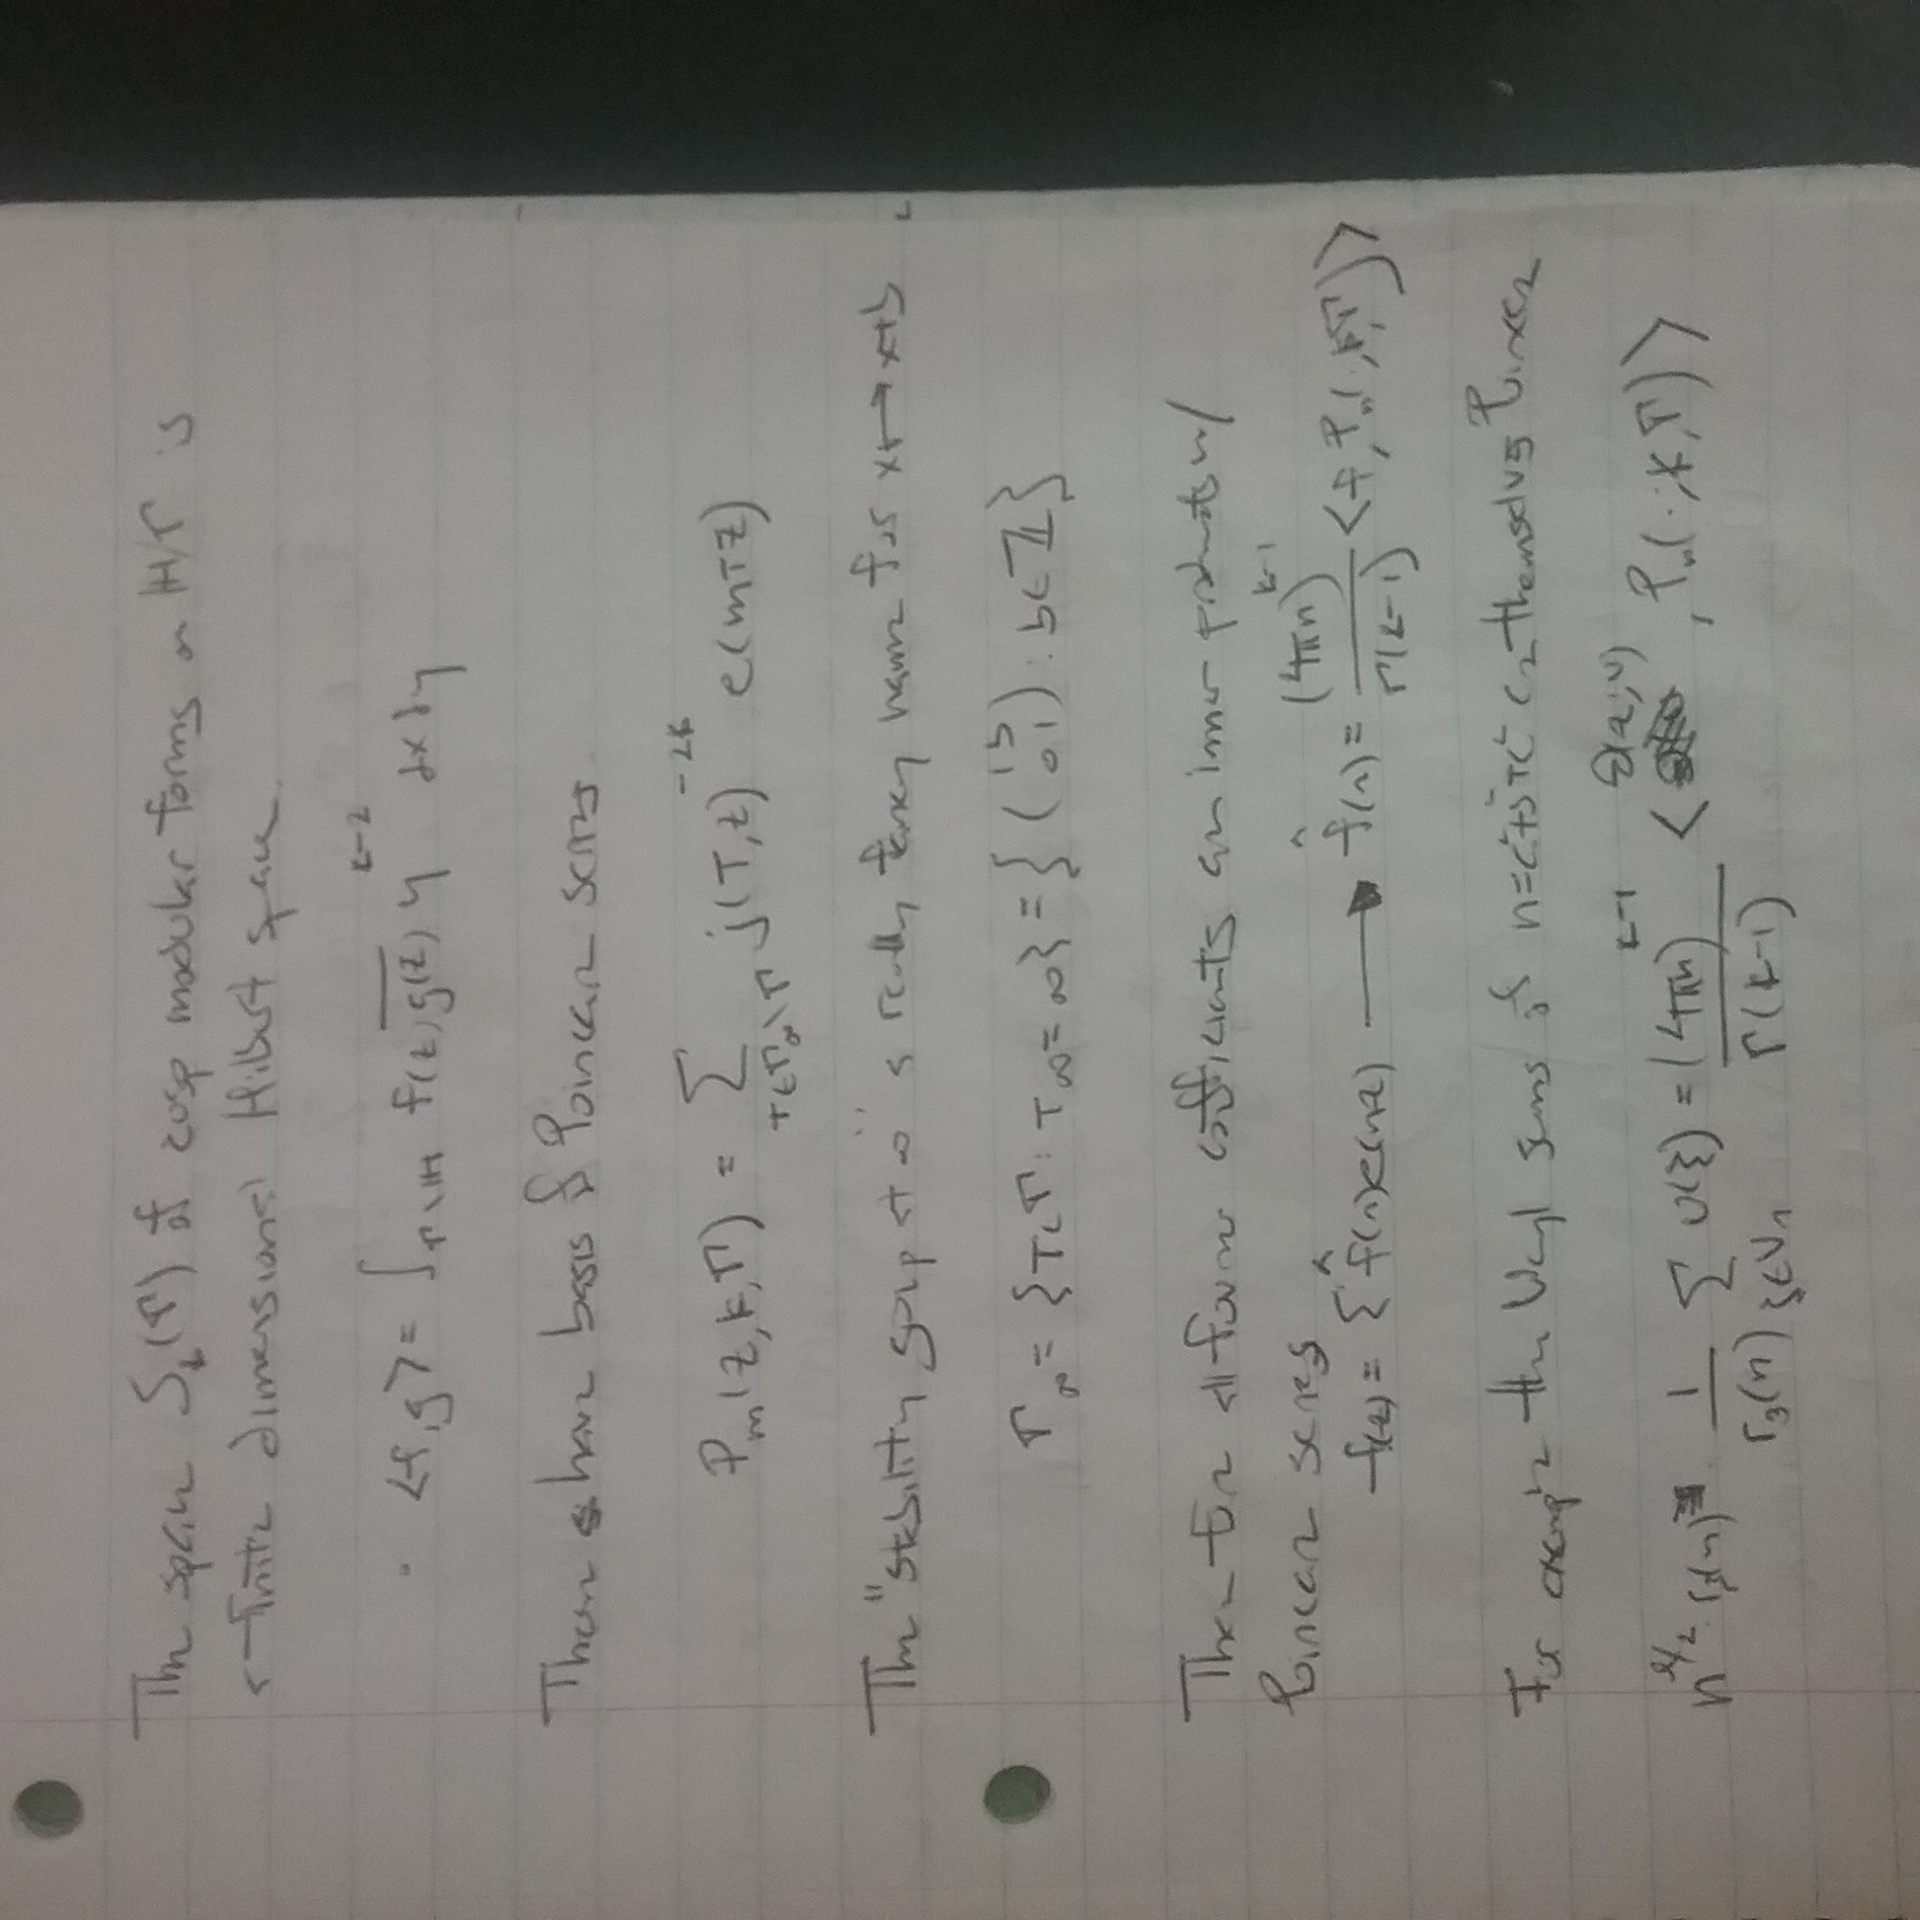 The space S_k(Γ) of cusp modular forms on H/Γ is
a finite dimensional Hilbert space
. <f,g> = ∫_{Γ\H} f(z) \overline{g(z)} y^{k-2} dx dy
There have basis of Poincare series
P_m(z,k,Γ) = Σ_{T∈Γ_∞\Γ} j(T,z)^{-2k} e(mTz)
The "stability group at ∞" is really fancy name for x ↦ x+b
Γ_∞ = {T∈Γ: T∞=∞} = {(1 b 0 1) : b∈ℤ}
The fourier coefficients are inner products w/
Poincare series
f(z) = Σ f̂(n) e(nz) → f̂(n) = (4πn)^{k-1} / Γ(k-1) <f, P_n(·,k,Γ)>
For example the Weyl sums of themselves Poincare
n^{ν/2} r_3(n) 1/r_3(n) Σ_{ξ∈V_n} u(ξ) = (4πn)^{k-1} / Γ(k-1) < Θ(z;u), P_n(·;k,Γ)>